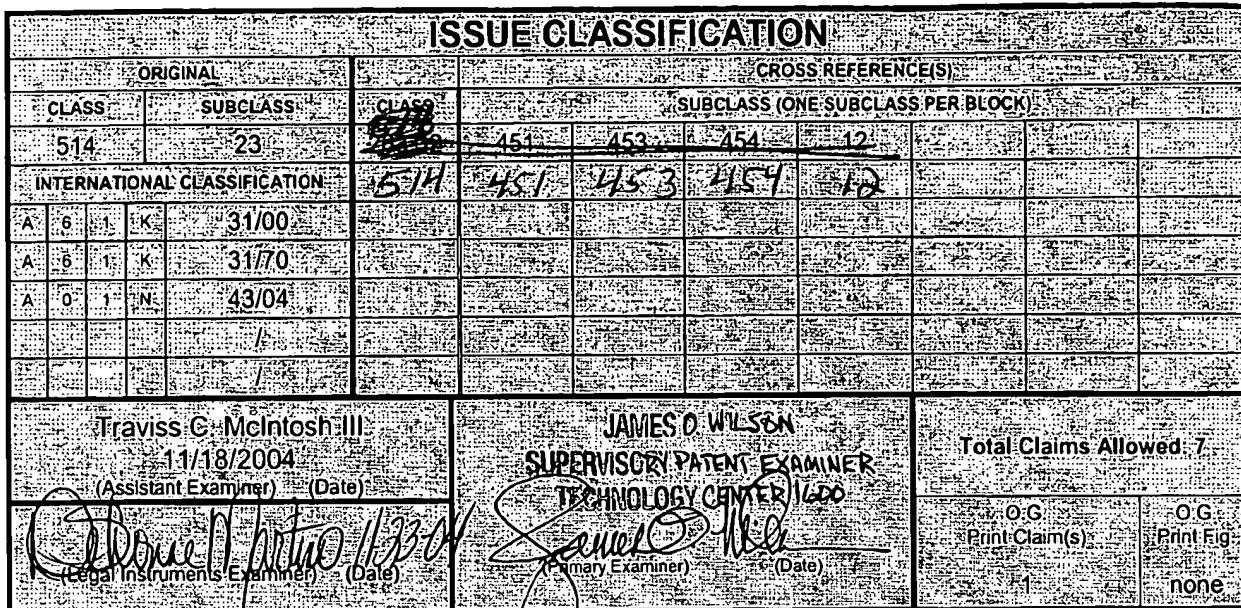 ISSUE CLASSIFICATION
ORIGINAL CROSS REFERENCE(S)
CLASS SUBCLASS CLASS SUBCLASS (ONE SUBCLASS PER BLOCK)
514 23 451 453 454 12
INTERNATIONAL CLASSIFICATION 514 451 453 454 12
A 6 1 K 31/00
A 6 1 K 31/70
A 0 1 N 43/04
/
/
Traviss C. McIntosh III
11/18/2004
(Assistant Examiner) (Date)
11-23-04
(Legal Instruments Examiner) (Date)
JAMES O. WILSON
SUPERVISORY PATENT EXAMINER
TECHNOLOGY CENTER 1600
(Primary Examiner) (Date)
Total Claims Allowed: 7
O.G. Print Claim(s)
1
O.G. Print Fig.
none